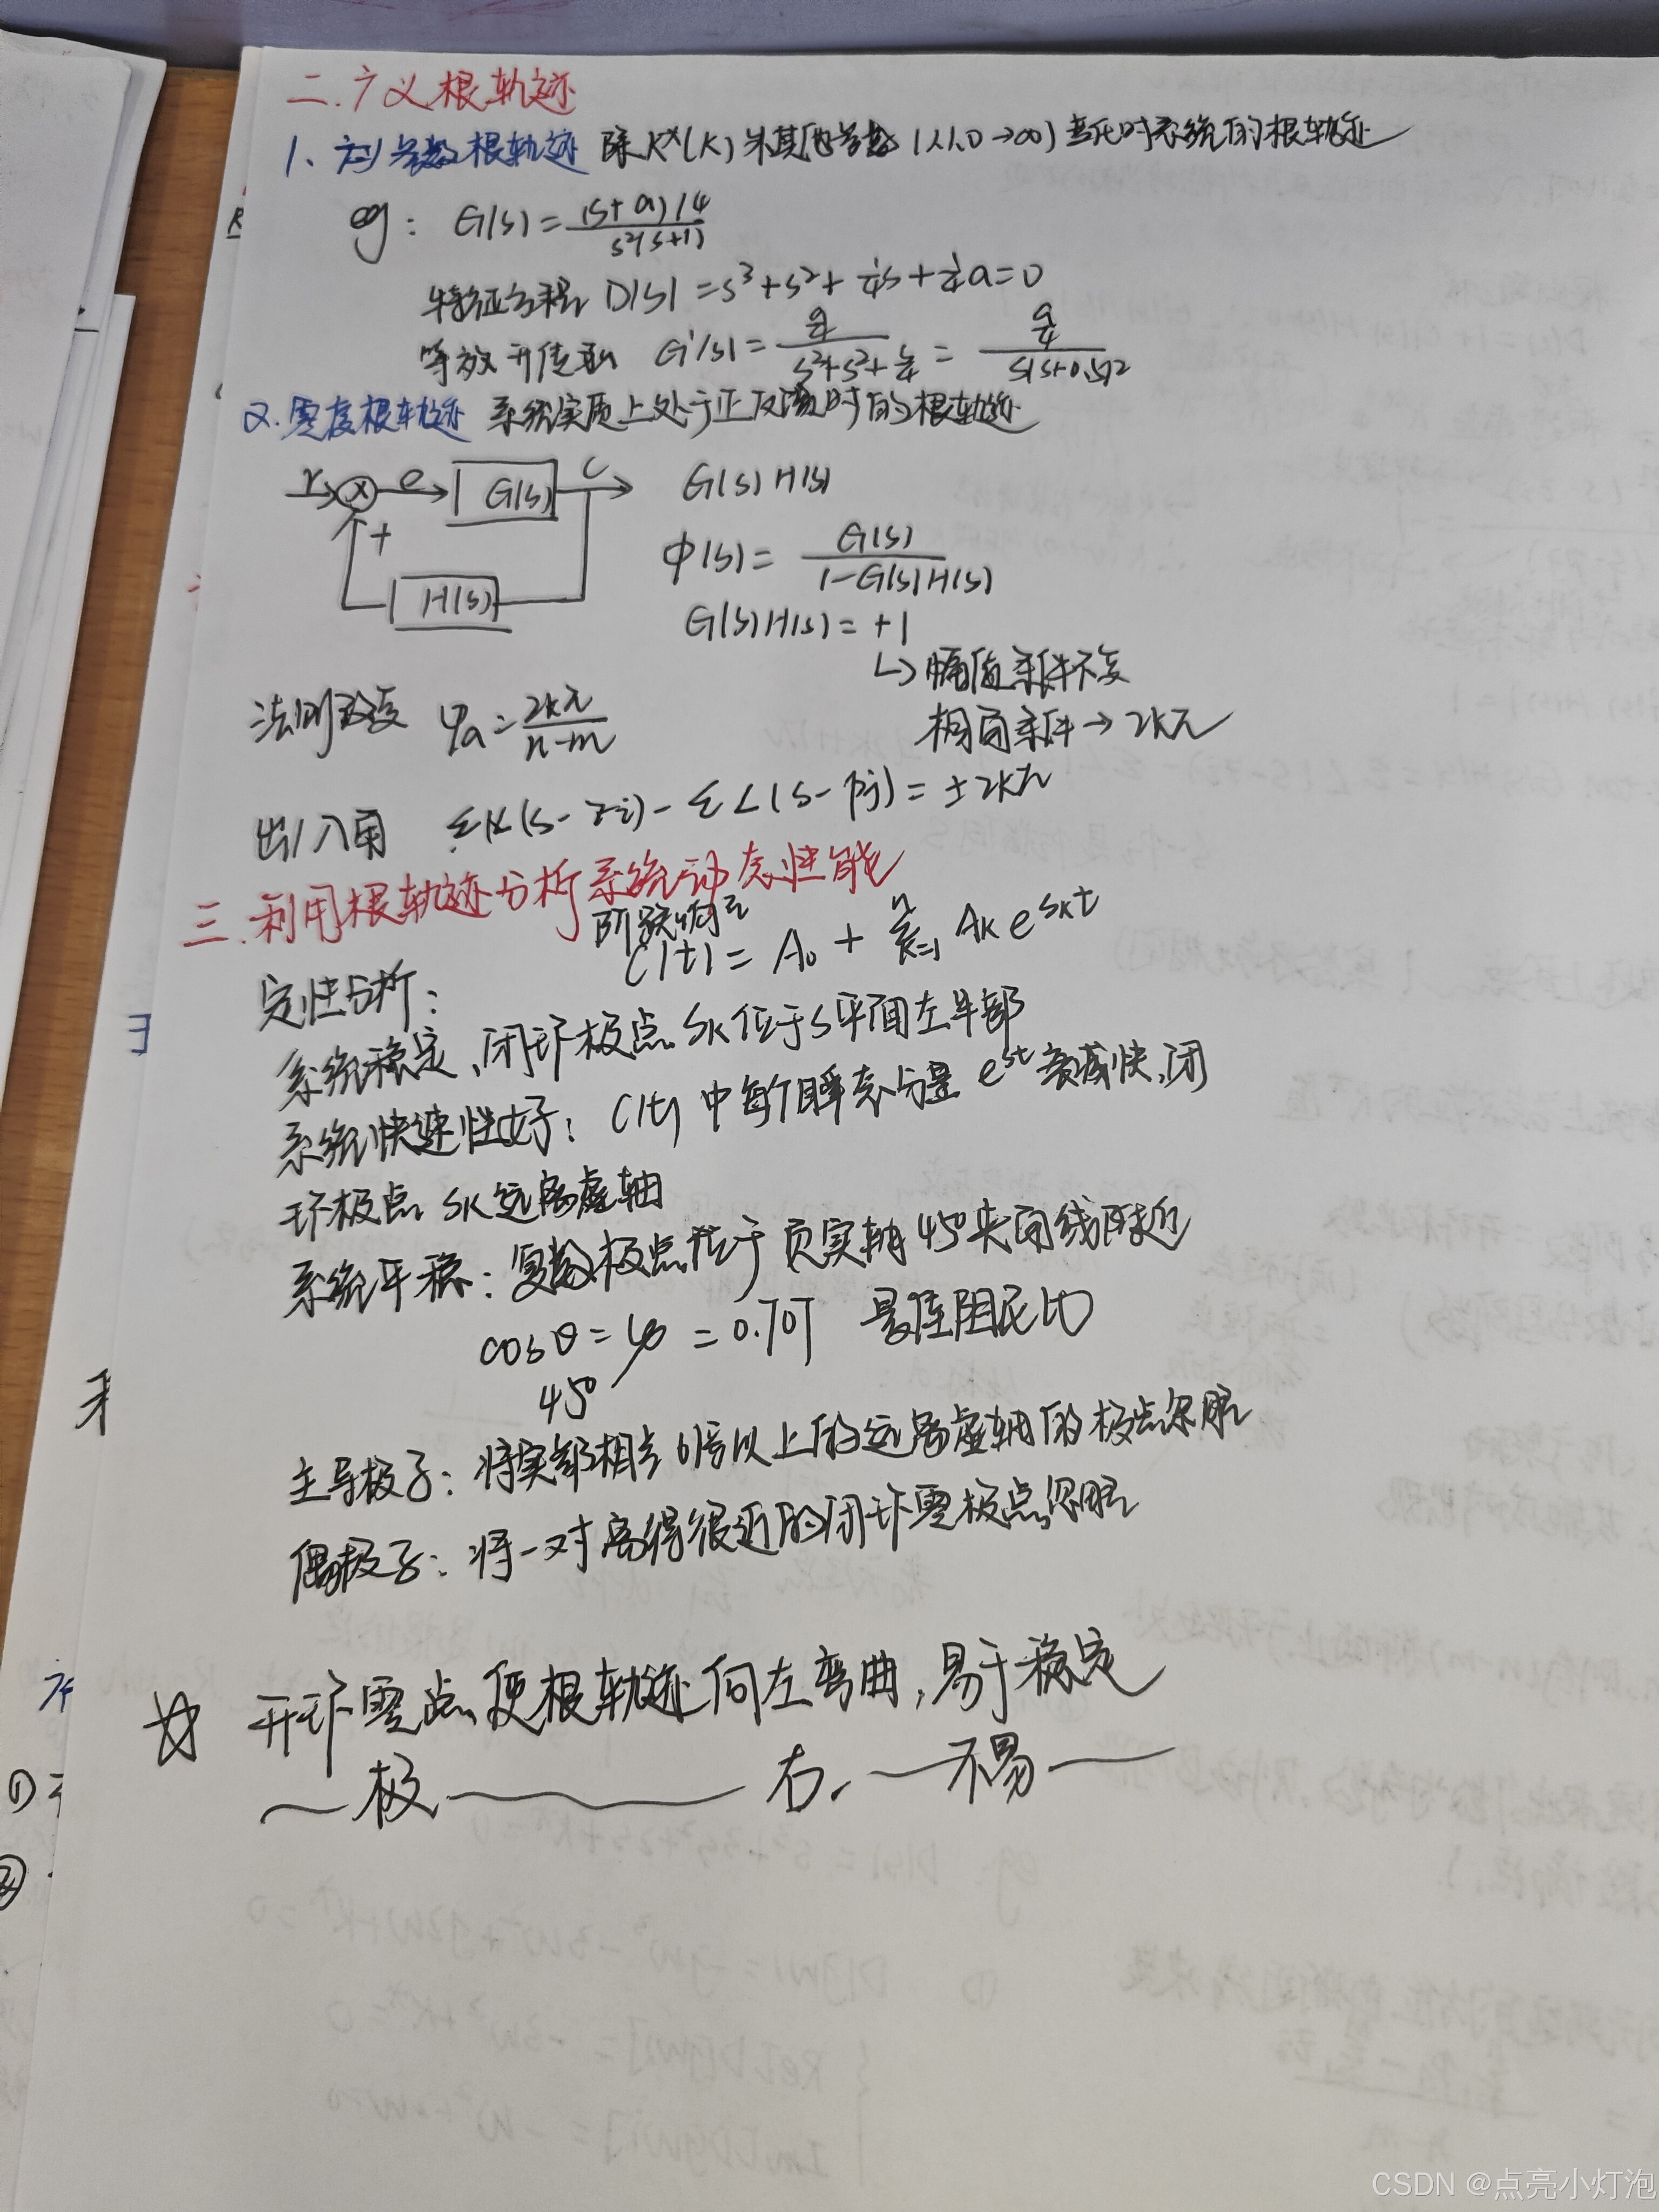 二.广义根轨迹
1、参数根轨迹 除K*(K)外其他参数(从0→∞)变化时系统的根轨迹
eg: G(s)=(s+a)/4 / s²(s+1)
特征方程 D(s)=s³+s²+¼s+¼a=0
等效开传函 G'(s)= a/4 / s³+s²+s/4 = a/4 / s(s+0.5)²
2.零度根轨迹 系统实质上处于正反馈时的根轨迹
r e G(s) c
+
H(s)
G(s)H(s)
Φ(s)= G(s) / 1-G(s)H(s)
G(s)H(s)=+1
↳幅值条件不变
相角条件→2kπ
法则改变 φa=2kπ / n-m
出/入角 Σ∠(s-zi)-Σ∠(s-pj)=±2kπ
三.利用根轨迹分析系统动态性能
阶跃响应
定性分析: C(t)=A₀+Σ(k=1..n) Ak e^skt
系统稳定、闭环极点 SK位于S平面左半部
系统快速性好: C(t)中每个瞬态分量 e^st衰减快,闭
环极点 SK远离虚轴
系统平稳:复数极点在于负实轴45°夹角线附近
cosθ= =0.707 最佳阻尼比
45°
主导极子:将实部相差6倍以上的远离虚轴的极点忽略
偶极子:将一对离得很近的闭环零极点忽略
☆ 开环零点使根轨迹向左弯曲,易于稳定
极 右. 不易
①
②
CSDN @点亮小灯泡